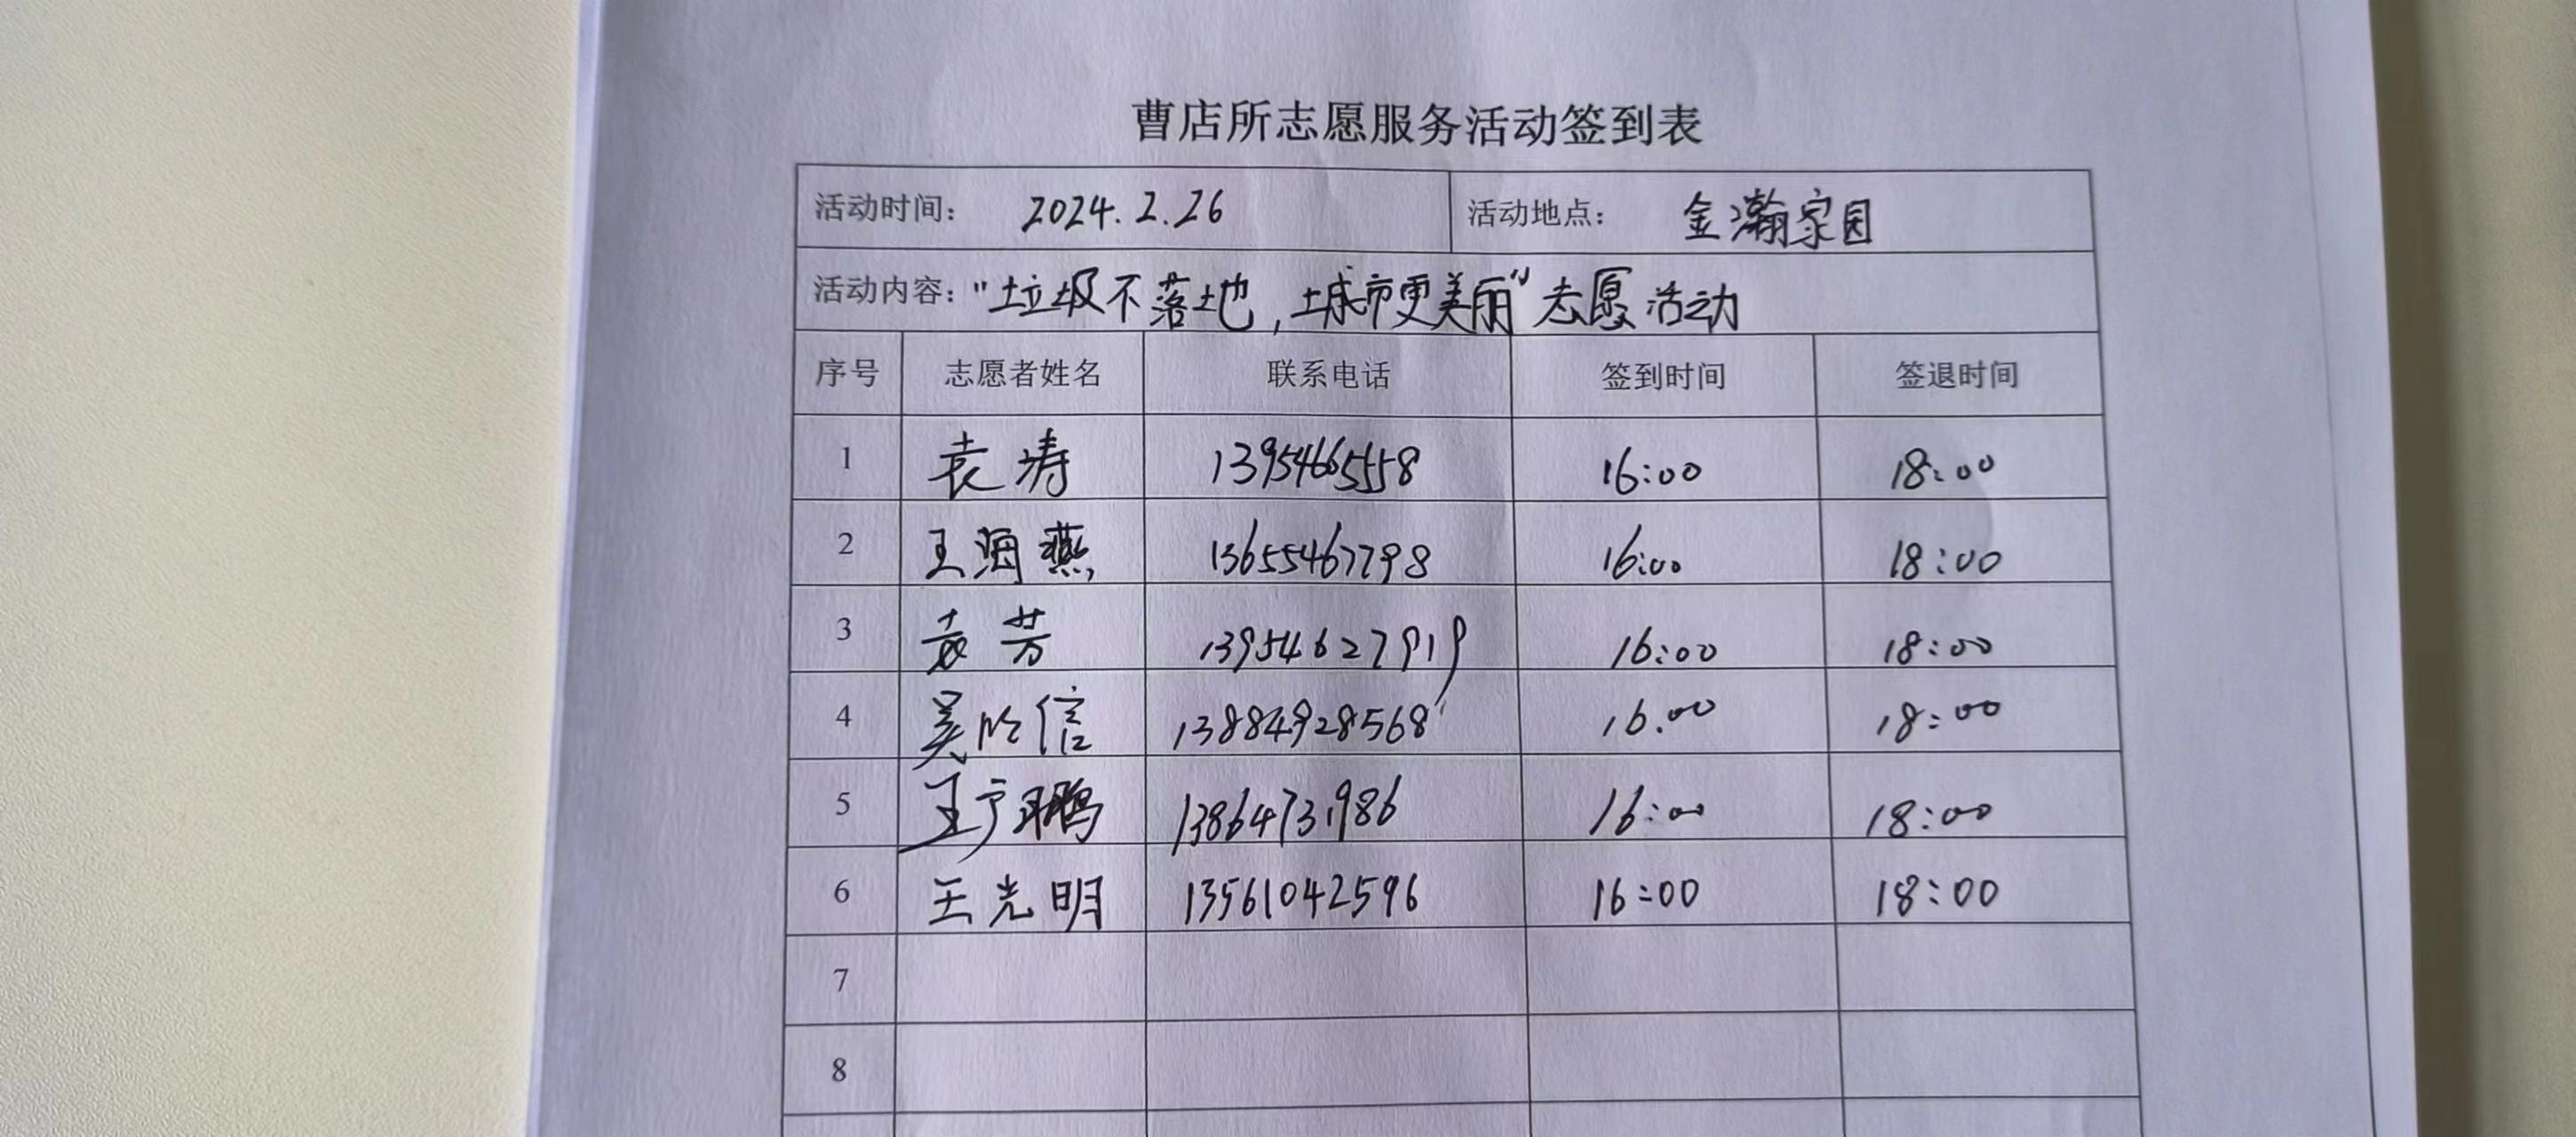 曹店所志愿服务活动签到表
活动时间: 2024.2.26 活动地点: 金瀚家园
活动内容: "垃圾不落地,城市更美丽"志愿活动
序号 志愿者姓名 联系电话 签到时间 签退时间
1 袁涛 13954665558 16:00 18:00
2 王海燕 13655467798 16:00 18:00
3 袁芳 13954627919 16:00 18:00
4 吴 信 13884928568 16.00 18:00
5 王 鹏 13864731986 16:00 18:00
6 王光明 13561042596 16:00 18:00
7
8